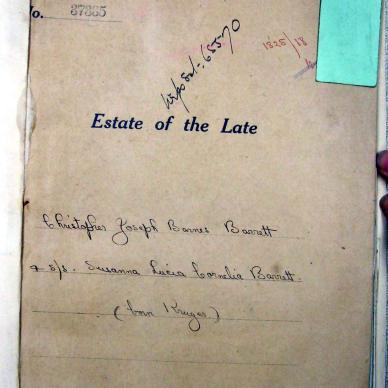 No. 37335
65570
1825/18
Estate of the Late
Christopher Joseph Barnes Barrett
& s/s. Susanna Lucia Cornelia Barrett.
(born Kruger)